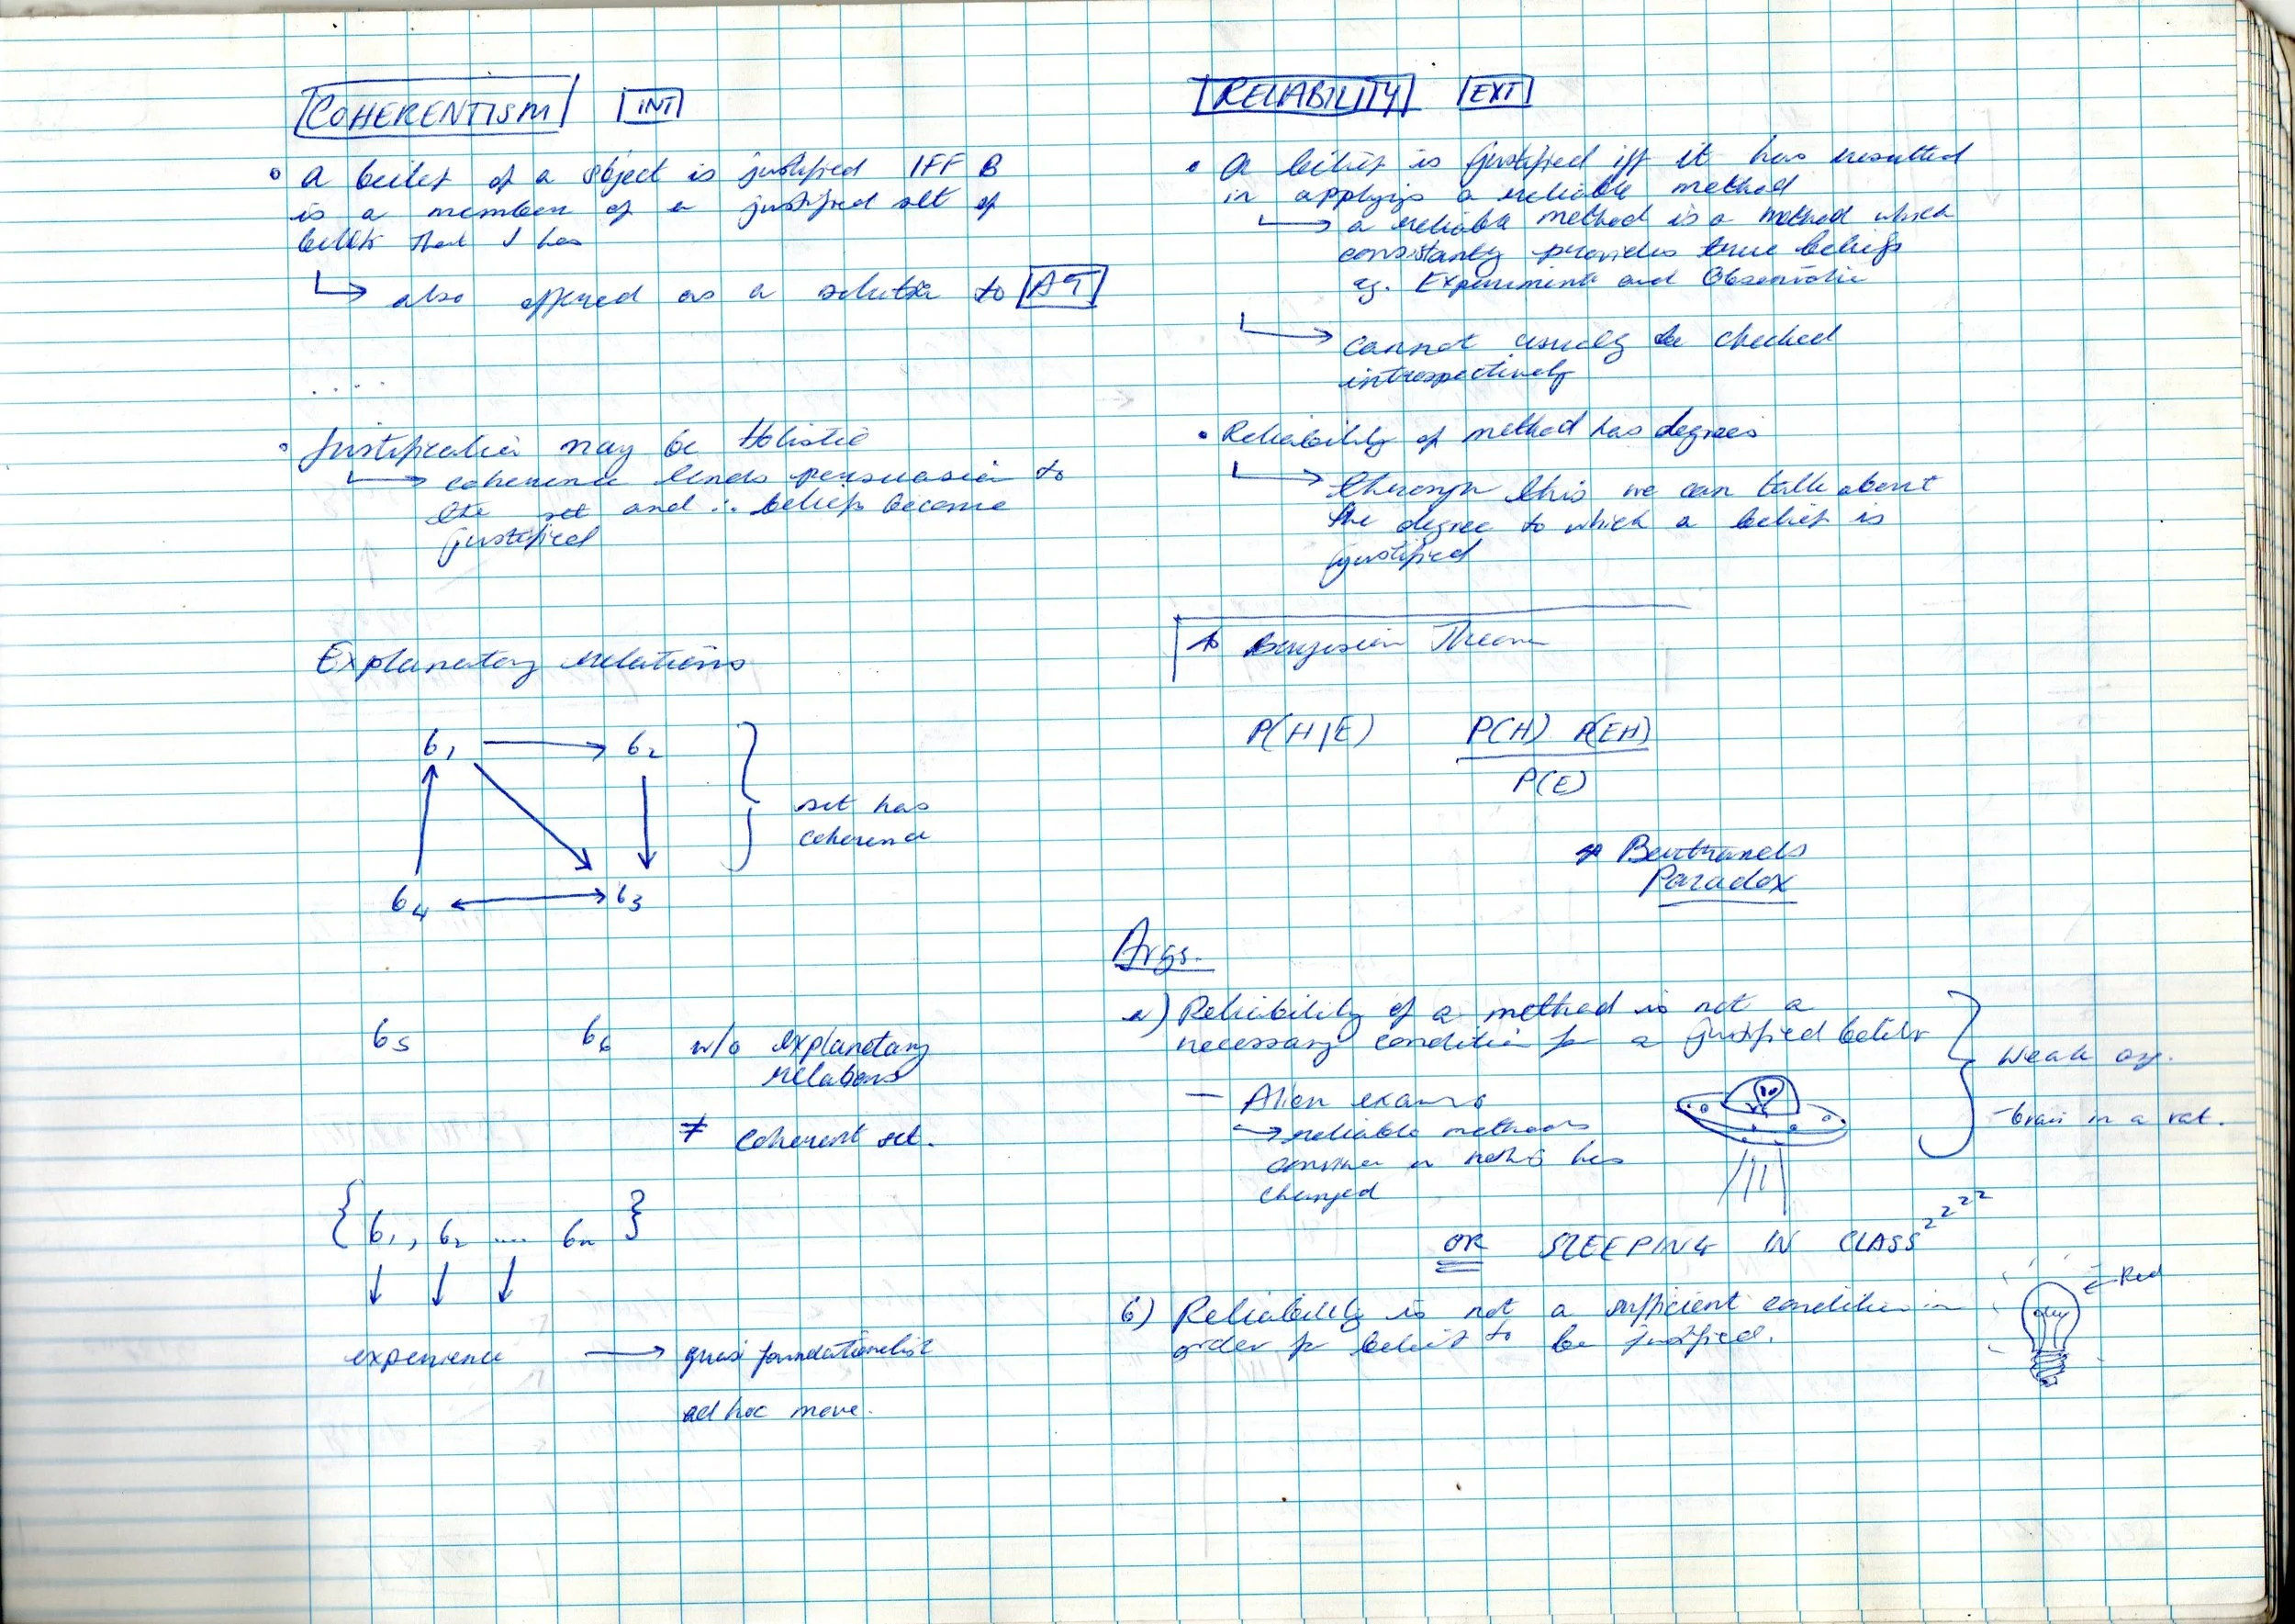 COHERENTISM INT
a belief of a object is justified IFF B
is a member of a justified set of
beliefs that I has
also offered as a solution to AT
.....
Justification may be Holistic
coherence lends persuasion to
the set and ∴ beliefs become
justified
Explanatory relations
b1 b2
b4 b3
set has
coherence
b5 b6 w/o explanatory
relations
≠ coherent set.
{ b1, b2 .... bn }
experience → quasi foundationalist
ad hoc move.
RELIABILITY EXT
a belief is justified iff it has resulted
in applying a reliable method
a reliable method is a method which
consistantly provides true beliefs
eg. Experiments and Observation
cannot usually be checked
introspectively
Reliability of method has degrees
through this we can talk about
the degree to which a belief is
justified
Bayesian Theorem
P(H|E) P(H) P(EH)
P(E)
* Bertrands
Paradox
Args.
a) Reliability of a method is not a
necessary condition for a justified belief
— Alien
→ reliable methods
has
changed
Weak arg.
- brain in a vat.
OR SLEEPING IN CLASS zzzz
b) Reliability is not a sufficient condition in
order for belief to be justified.
Red